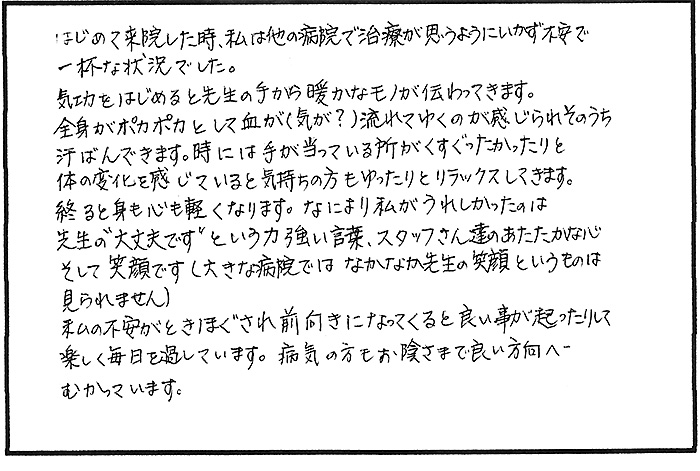 はじめて来院した時、私は他の病院で治療が思うようにいかず不安で
一杯な状況でした。
気功をはじめると先生の手から暖かなモノが伝わってきます。
全身がポカポカとして血が(気が？)流れてゆくのが感じられそのうち
汗ばんできます。時には手が当っている所がくすぐったかったりと
体の変化を感じていると気持ちの方もゆったりとリラックスしてきます。
終ると身も心も軽くなります。なにより私がうれしかったのは
先生の"大丈夫です"という力強い言葉、スタッフさん達のあたたかな心
そして笑顔です(大きな病院ではなかなか先生の笑顔というものは
見られません)
私の不安がときほぐされ前向きになってくると良い事が起ったりして
楽しく毎日を過しています。病気の方もお陰さまで良い方向へ
むかっています。